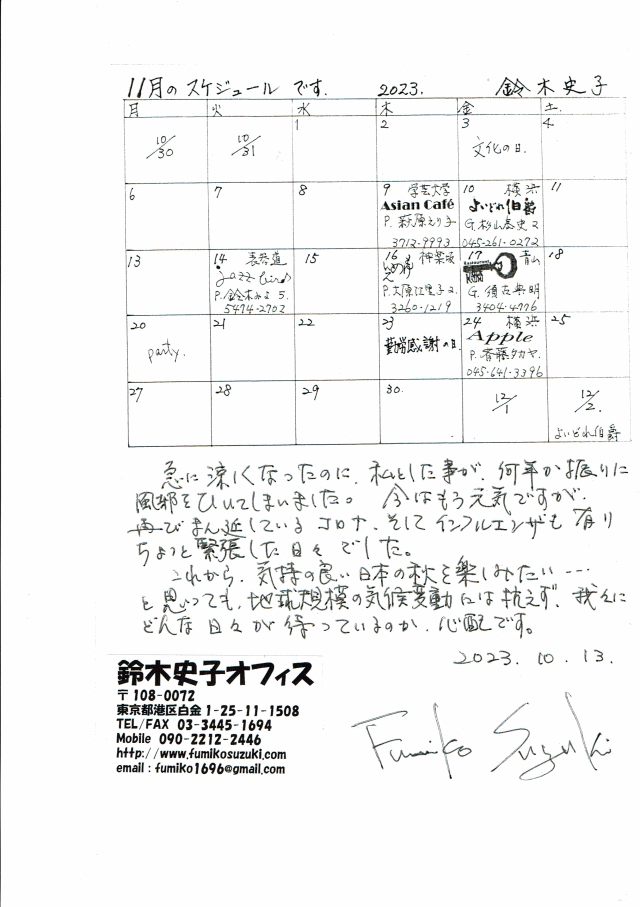 11月の スケジュール です. 2023. 鈴木史子
月 火 水 木 金 土.
10/30 10/31 1 2 3 4
文化の日.
6 7 8 9 学芸大学 10 横浜 11
Asian Café よいどれ伯爵
P. 萩原えり子 G. 杉山泰史 2
3712-9993 045-261-0272
13 14 表参道 15 16 神楽坂 17 青山 18
Jazz bird
P. 鈴木みよ 5. P. 大原江里子 2. G. 須古典明
5474-2702 3260-1219 3404-4776
20 21 22 23 24 横浜 25
party. 勤労感謝の日. Apple
P. 斉藤タカヤ.
045-641-3396
27 28 29 30. 12/1 12/2.
よいどれ伯爵
急に涼しくなったのに、私とした事が、何年か振りに
風邪をひいてしまいました。 今はもう元気ですが、
再びまん延しているコロナ、そしてインフルエンザも有り
ちょっと緊張した日々でした。
これから、気持の良い日本の秋を楽しみたい・・・
と思っても、地球規模の気候変動には抗えず、我々に
どんな日々が待っているのか、心配です。
2023. 10. 13.
鈴木史子オフィス
〒108-0072
東京都港区白金 1-25-11-1508
TEL/FAX 03-3445-1694
Mobile 090-2212-2446
http://www.fumikosuzuki.com
email : fumiko1696@gmail.com
Fumiko Suzuki